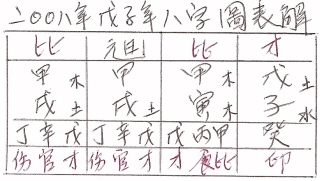 二〇〇八年戊子年八字圖表解
比 元旦 比 才
甲木 甲 甲木 戊土
戌土 戌土 寅木 子水
丁辛戊 丁辛戊 戊丙甲 癸
伤官才 伤官才 才食比 印